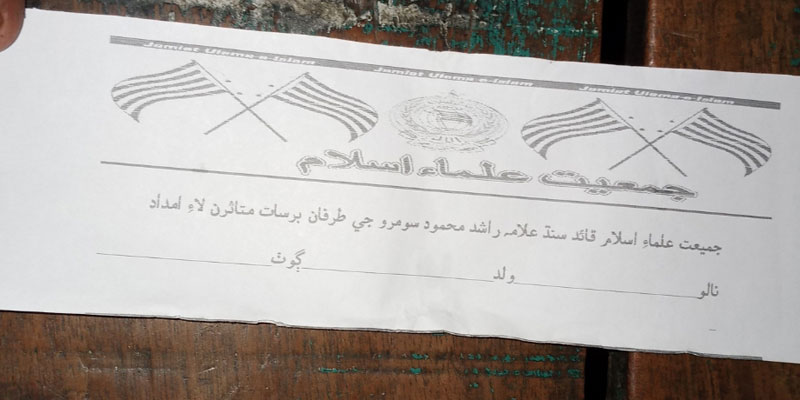 Jamiat Ulema-e-Islam Jamiat Ulema-e-Islam Jamiat Ulema-e-Islam
جمعیت علماء اسلام
جميعت علماءِ اسلام قائد سنڌ علامہ راشد محمود سومرو جي طرفان برسات متاثرن لاءِ امداد
نالو ____________ ولد ____________ ڳوٺ ____________